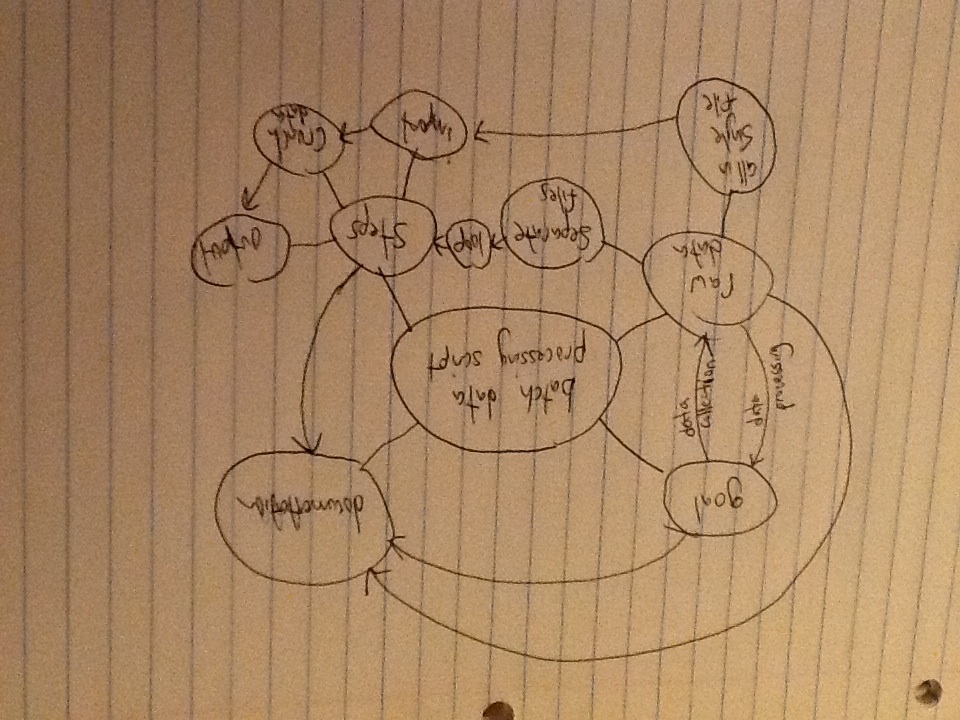 documentation
goal
data
collection
data
processing
batch data
processing script
raw
data
Separate
files
loop
Steps
output
all in
Single
file
input
Crunch
data